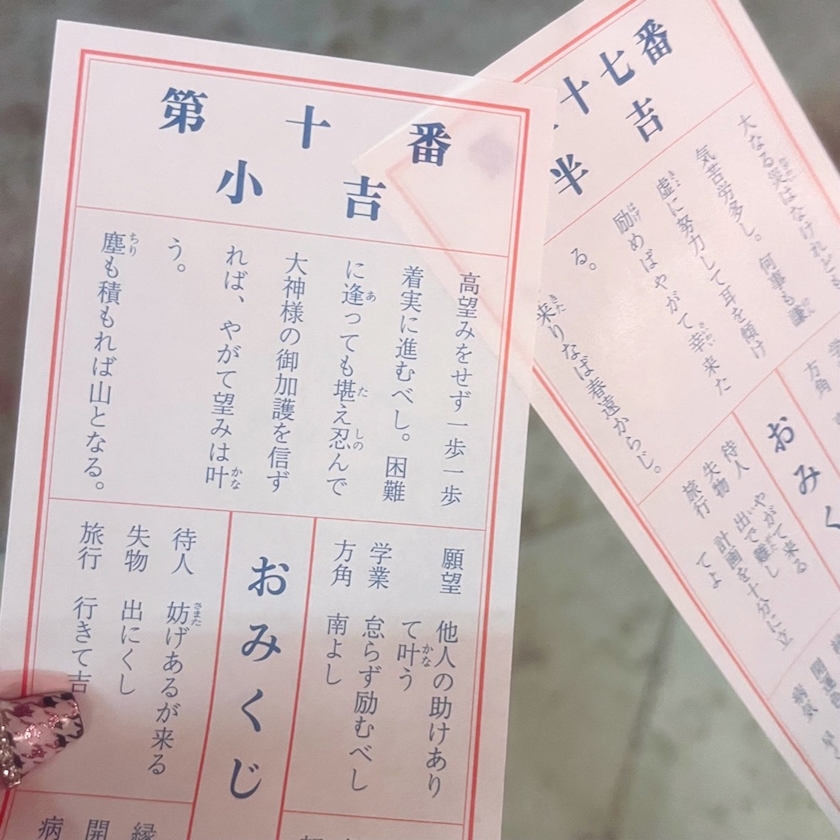 第十番
小吉
高望みをせず一歩一歩
着実に進むべし。困難
に逢っても堪え忍んで
大神様の御加護を信ず
れば、やがて望みは叶
う。
塵も積もれば山となる。
願望 他人の助けあり
て叶う
学業 怠らず励むべし
方角 南よし
おみくじ
待人 妨げあるが来る
失物 出にくし
旅行 行きて吉
縁
開
病
十七番
半吉
大なる災はなけれど
気苦労多し。何事も謙
虚に努力して耳を傾け
励めばやがて幸来た
る。
来りなば春遠からじ。
方角
おみく
待人 やがて来る
失物 出で難し
旅行 計画を十分に立
てよ
開運
病気